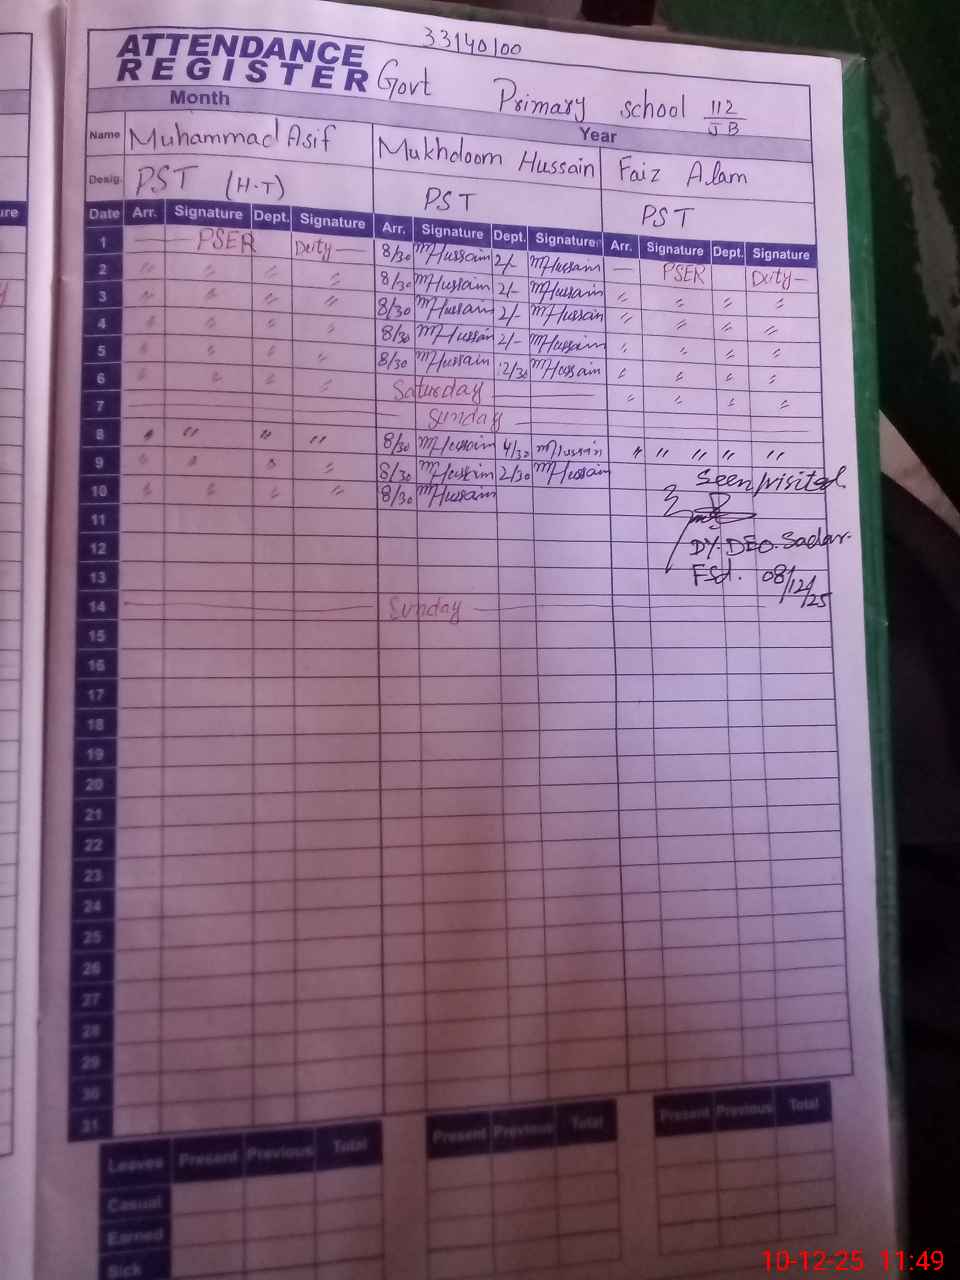 33140100
ATTENDANCE
REGISTER Govt Primary school 112/JB
Month Year
Name Muhammad Asif Mukhdoom Hussain Faiz Alam
Desig. PST (H-T) PST PST
Date Arr. Signature Dept. Signature Arr. Signature Dept. Signature Arr. Signature Dept. Signature
1 PSER Duty 8/30 MHussain 2/- MHussain PSER Duty
2 〃 〃 〃 〃 8/30 MHussain 2/- MHussain 〃 〃 〃 〃
3 〃 〃 〃 〃 8/30 MHussain 2/- MHussain 〃 〃 〃 〃
4 〃 〃 〃 〃 8/30 MHussain 2/- MHussain 〃 〃 〃 〃
5 〃 〃 〃 〃 8/30 MHussain 12/30 MHussain 〃 〃 〃 〃
6 〃 〃 〃 〃 Saturday 〃 〃 〃 〃
7 Sunday
8 〃 〃 〃 〃 8/30 MHussain 4/30 MHussain 〃 〃 〃 〃 〃
9 〃 〃 〃 〃 8/30 MHussain 2/30 MHussain Seen/visited
10 〃 〃 〃 〃 8/30 MHussain
11
12 DY. DEO. Sadar.
13 Fsd. 08/12/25
14 Sunday
15
16
17
18
19
20
21
22
23
24
25
26
27
28
29
30
31
Leaves Present Previous Total Present Previous Total Present Previous Total
Casual
Earned
Sick
10-12-25 11:49